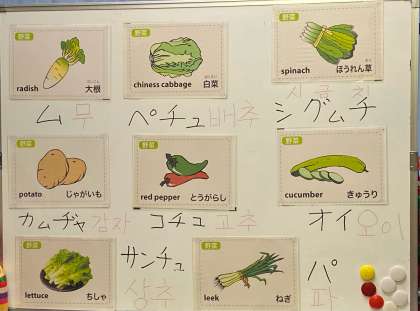 野菜
radish 大根
野菜
chiness cabbage 白菜
野菜
spinach ほうれん草
ム 무
ペチュ 배추
シグムチ 시금치
野菜
potato じゃがいも
野菜
red pepper とうがらし
野菜
cucumber きゅうり
カムヂャ 감자
コチュ 고추
オイ 오이
野菜
lettuce ちしゃ
サンチュ
상추
野菜
leek ねぎ
パ
파